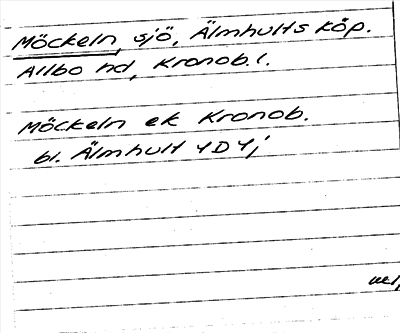 Möckeln, sjö, Älmhults köp.
Allbo hd, Kronob. l.
Möckeln ek Kronob.
bl. Älmhult 4D4j